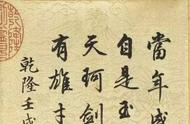 當年
自是玉
天珂劍
有雄才
乾隆壬戌